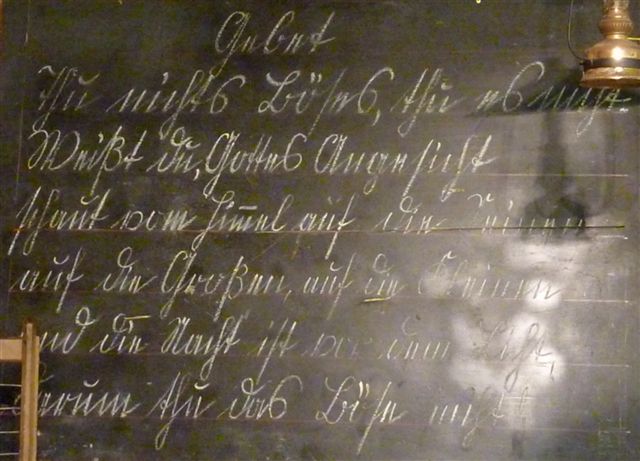 Gebet
Thu nichts Böses, thu es nicht.
Weißt du, Gottes Angesicht
schaut vom Him̄el auf die Seinen
auf die Großen, auf die Kleinen
und die Nacht ist vor dem Licht,
darum thu das Böse nicht!